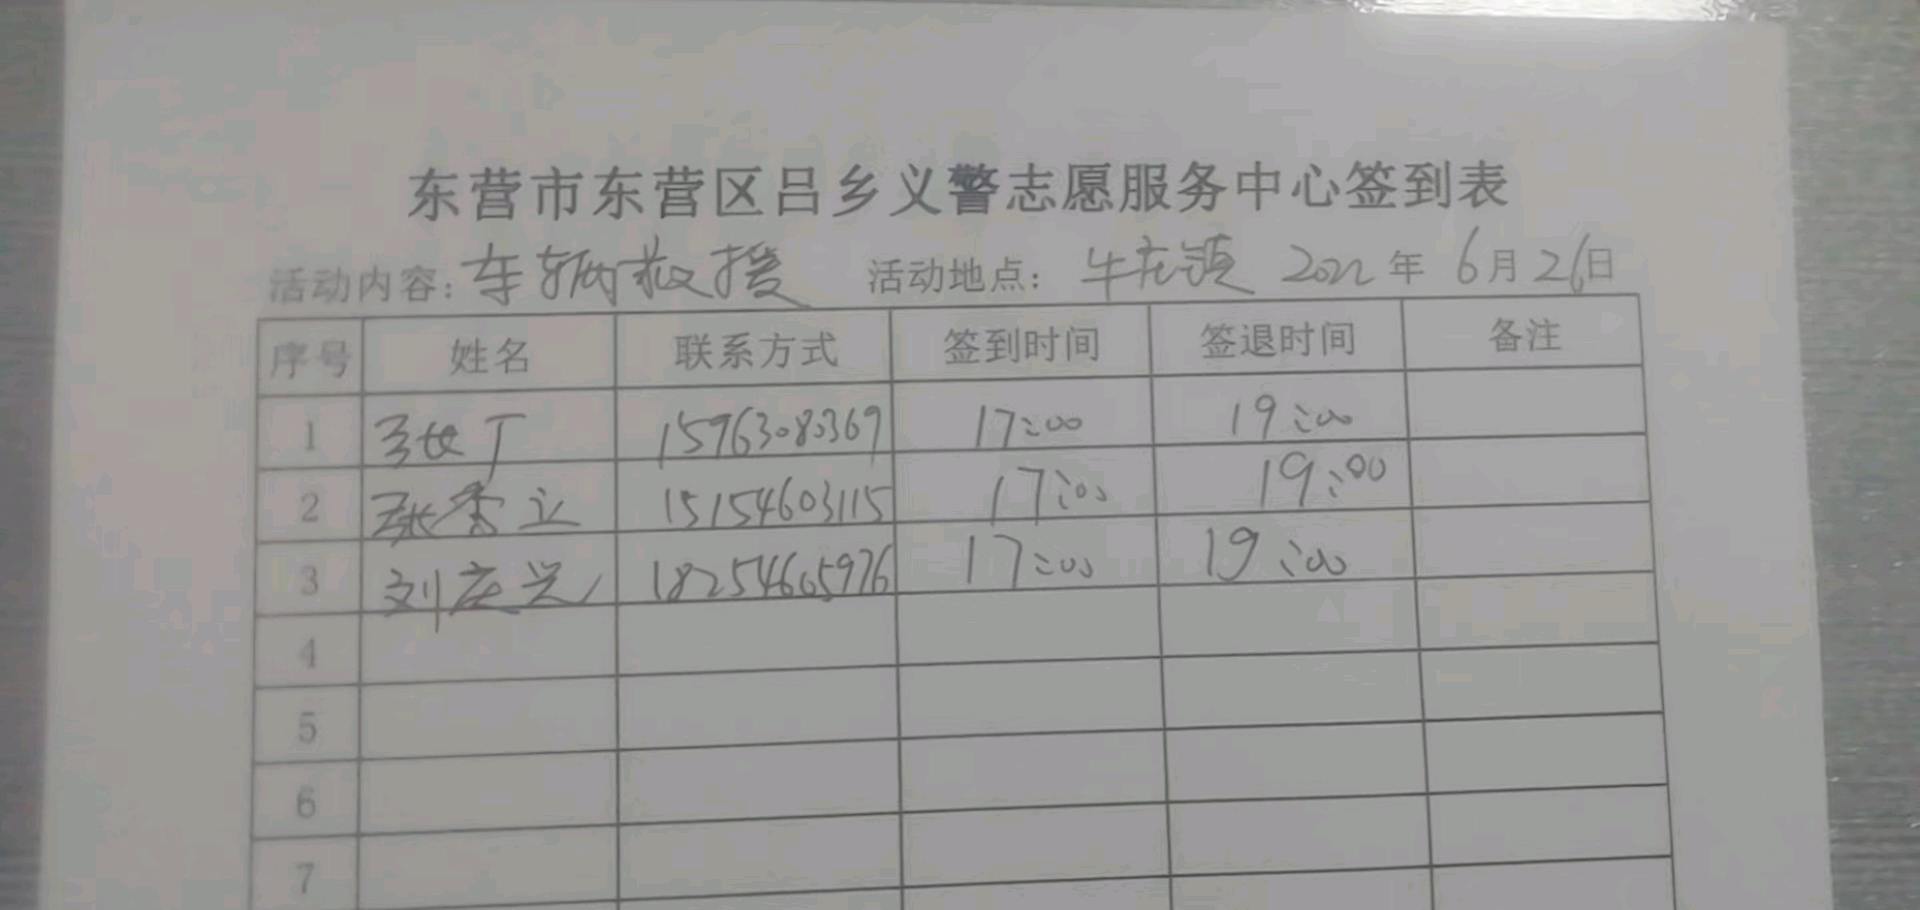 东营市东营区吕乡义警志愿服务中心签到表
活动内容：车辆救援 活动地点：牛庄镇 2022年 6月26日
序号 姓名 联系方式 签到时间 签退时间 备注
1 15963080369 17:00 19:00
2 张秀立 15154603115 17:00 19:00
3 刘庆兴 18254605976 17:00 19:00
4
5
6
7